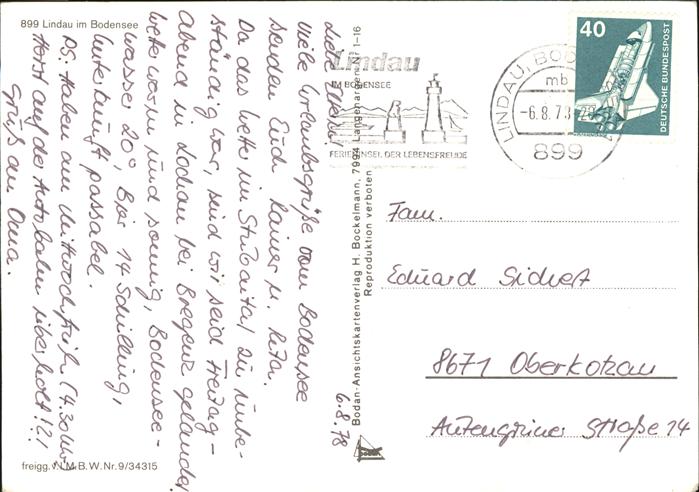 899 Lindau im Bodensee
6.8.78
Liebe Eltern!
Viele Urlaubsgrüße vom Bodensee
senden Euch Rainer u. Rita.
Da das Wetter im Stubaital zu unbe-
ständig war, sind wir seid Freitag-
Abend in Lochau bei Bregenz gelandet.
Wetter warm und sonnig, Bodensee-
wasser 20°, Bier 14 Schilling,
Unterkunft passabel.
PS. Haben am Mittwoch früh (4.30 Uhr)
Horst auf der Autobahn überholt!?!
Gruß an Oma.
freigg. v. I. M. B. W. Nr. 9/34315
Bodan-Ansichtskartenverlag H. Bockelmann, 7994 Langenargen Nr. 1-16
Reproduktion verboten
Lindau
IM BODENSEE
FERIENINSEL DER LEBENSFREUDE
LINDAU, BODENSEE
mb
-6.8.78
899
40
DEUTSCHE BUNDESPOST
Fam.
Eduard Sichert
8671 Oberkotzau
Autengrüner Straße 14